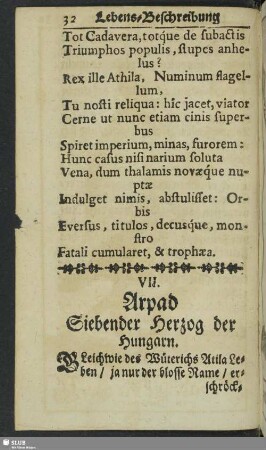 32 Lebens-Beschreibung
Tot Cadavera, totque de subactis
Triumphos populis, stupes anhe-
lus?
Rex ille Athila, Numinum flagel-
lum,
Tu nosti reliqua: hic jacet, viator
Cerne ut nunc etiam cinis super-
bus
Spiret imperium, minas, furorem:
Hunc casus nisi narium soluta
Vena, dum thalamis novæque nu-
ptæ
Indulget nimis, abstulisset: Or-
bis
Eversus, titulos, decusque, mon-
stro
Fatali cumularet, & trophæa.
VII.
Arpad
Siebender Herzog der
Hungarn.
GLeichwie des Wüterichs Atila Le-
ben / ja nur der blosse Name / er-
schröck-
SLUB